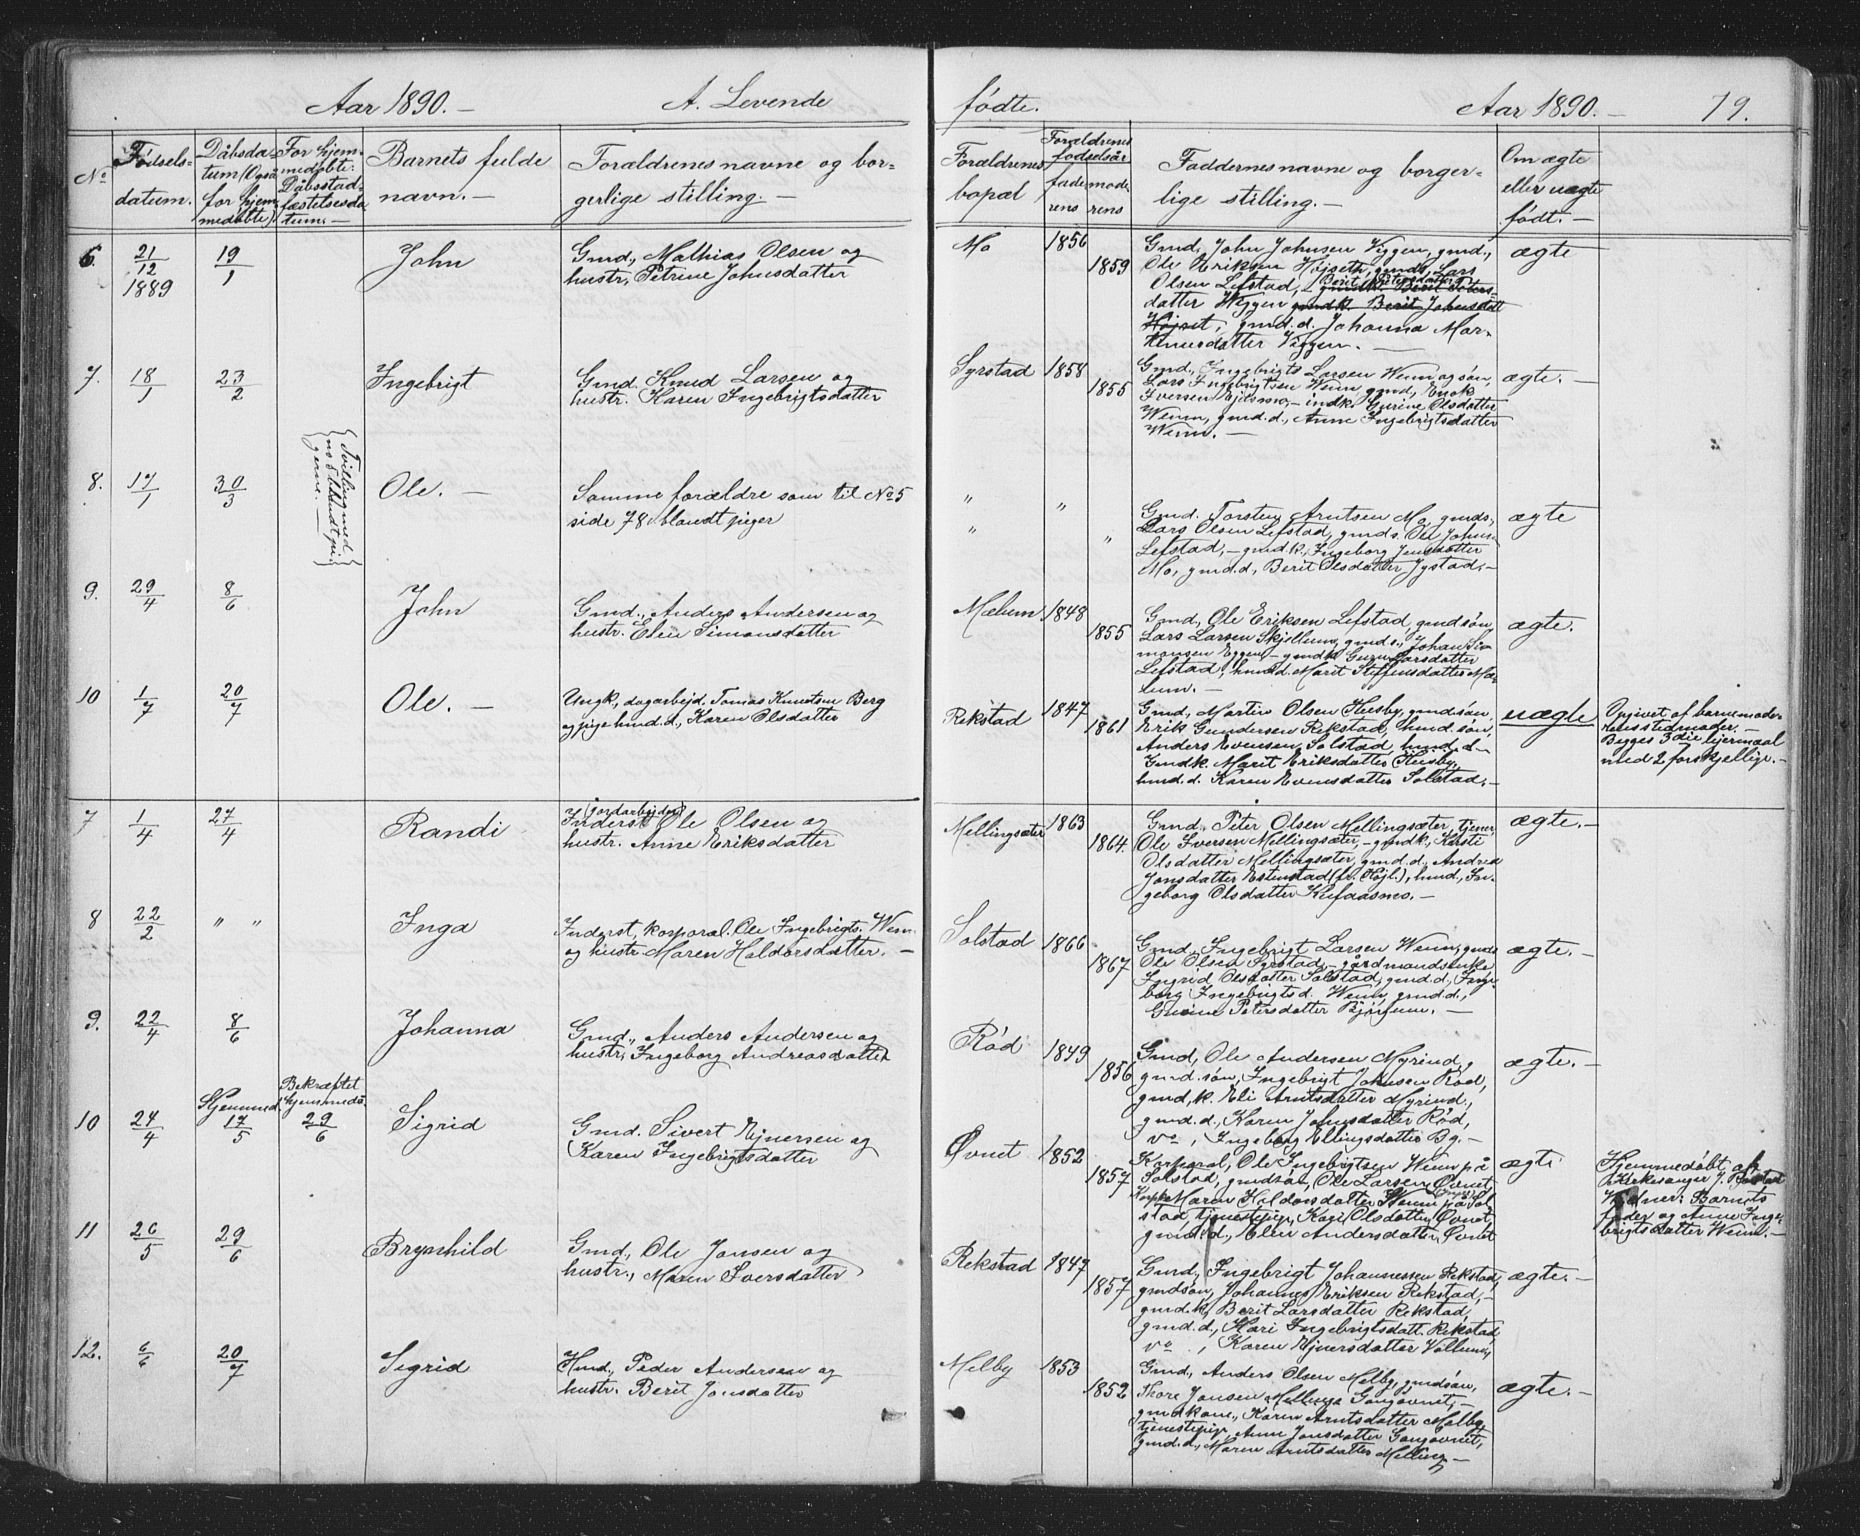 Aar 1890. — A. Levende
fødte. Aar 1890. — 79.
No Fødsels-datum. Dåbsda-tum (Også for hjem-medøbte) For hjem-medøbte: Dåbsstad-fæstelsesda-tum. — Barnets fulde navn. — Forældrenes navne og bor-gerlige stilling. —
Forældrenes bopæl Forældrenes fødselsår faderens moderens Faddernes navne og borger-lige stilling. — Om ægte eller uægte født. —
6. 21/12 1889 19/1 John
Gmd., Mathias Olsen og
hustr. Petrine Johnsdatter
Mo 1856 1859
Gmd. John Johnsen Viggen, gmd.,
Ole Eriksen Højseth, gmds. Lars
Olsen Lefstad,
datter Viggen gmdk. Berit Johnsdatt
Højset, gmd.d. Johanna Mar-
tinusdatter Viggen. —
ægte
7. 18/1 23/2 Ingebrigt
Gmd. Knud Larsen og
hustr. Karen Ingebrigtsdatter
Syrstad 1858 1855
Gmd., Ingebrigt Larsen Wenn og søn,
Lars Ingebrigtsen Wenn, gmd, Enok
Iversen Ejlsmo, — indk. Gurine Olsdatter
Wenn, gmd.d., Anne Ingebrigtsdatter
Wenn. —
ægte. —
8. 17/1 30/3 Ole. —
Tvilling med
no 5 blandt pi-
gerne. —
Samme forældre som til No 5
side 78 blandt piger
" " " "
Gmd. Torsten Arntsen Mo, gmds.,
Lars Olsen Lefstad, gmds. Ole Johns.
Lefstad, — gmd.k., Ingeborg Jensdatter
Mo, gmd.d., Berit Olsdatter Jystad, —
ægte
9. 29/4 8/6 John
Gmd., Anders Andersen og
hustr. Elen Simonsdatter
Mælum 1848 1855
Gmd, Ole Eriksen Lefstad, gmdsøn,
Lars Larsen Skjellum, gmd.s., Johan Si-
monsen Eggen — gmdk Guru Larsdatter
Lefstad, hmd.d. Marit Steffensdatter Mæ-
lum. —
ægte.
10 1/7 20/7 Ole. —
Ungk., dagarbejd. Tomas Knudsen Berg
og pige hmd.d., Karen Olsdatter
Rekstad 1847 1861
Gmd., Martin Olsen Husby, gmdsøn,
Erik Gundersen Rekstad, hmd.søn,
Anders Evensen Solstad, hmd.d —
Gmdk. Marit Eriksdatter Husby,
hmd.d. Karen Evensdatter Solstad. —
uægte
Opgivet af barnemoder-
Begges 3die lejermaal
med 2 forskjellige. —
7 1/4 27/4 Randi
(jordarbejder)
Inderst Ole Olsen og
hustr. Anne Eriksdatter
Mellingsæter 1863 1864.
Gmd., Peter Olsen Mellingsæter, tjener,
Ole Iversen Mellingsæter, — gmdk., Kirsti
Olsdatter Mellingsæter, gmd.d., Andrea
Jonsdatter Estenstad (fr. Højl.), hmd., In-
geborg Olsdatter Klefaasmo. —
ægte. —
8 22/2 " " Inga
Inderst, korporal. Ole Ingebrigts. Wenn
og hustr. Maren Haldorsdatter. —
Solstad 1866 1867
Gmd, Ingebrigt Larsen Wenn, gmds
Ole Olsen Syrstad, — gårdmandsenke
Ingrid Olsdatter Solstad, gmd.d., Inge-
borg Ingebrigtsd. Wenn, gmd.d.,
Gurine Petersdatter Bjørfunn. —
ægte. —
9. 22/4 8/6 Johanna
Gmd., Anders Andersen og
hustr, Ingeborg Andreasdatter
Rød 1849 1856
Gmd, Ole Andersen Myrind,
gmd.søn, Ingebrigt Johnsen Rød,
gmd.k. Eli Arntsdatter Myrind.,
gmd.d., Karen Johnsdatter Rød,
vo, Ingeborg Ellingsdatter Bg. —
ægte. —
10 24/4 Hjemmed. 17/5 Bekræftet hjemmedø. 29/6 Sigrid
Gmd. Sivert Ejnersen og
Karen Ingebrigtsdatter
Øvnet 1852 1857
Korporal, Ole Ingebrigtsen Wenn på
Solstad, gmdsøn, Ole Larsen Øvnet,
Maren Haldorsdatter Wenn, på Sol-
stad, tjenestepige, Kari Olsdatter, Øvnet,
gmd.d., Elen Andersdatter, Øvnet
ægte
Hjemmedøbt af
Kirkesanger J. Syrstad
Widner: Barnets
fader og Anne Inge-
brigtsdatter Wenn. —
11 26/5 29/6 Brynhild
Gmd., Ole Jonsen og
hustr., Maren Iversdatter
Rekstad 1847 1857
Gmd., Ingebrigt Johannessen Rekstad,
gmdsøn, Johannes Eriksen Rekstad, —
gmd.k, Berit Larsdatter Rekstad,
gmd.d., Kari Ingebrigtsdatt. Rekstad
vo, Karen Ejnersdatter Vollum,
ægte. —
12. 6/6 20/7 Sigrid
Hmd., Peder Andersen og
hustr. Berit Jonsdatter
Melby 1853 1852
Gmd., Anders Olsen Melby, gmdsøn,
Thore Jonsen Mellinga Gangovnet, —
gmdkone, Karen Arntsdatter Melby,
tjenestepige, Anne Jonsdatter Gangovnet,
gmd.d., Maren Arntsdatter Melling, —
ægte. —